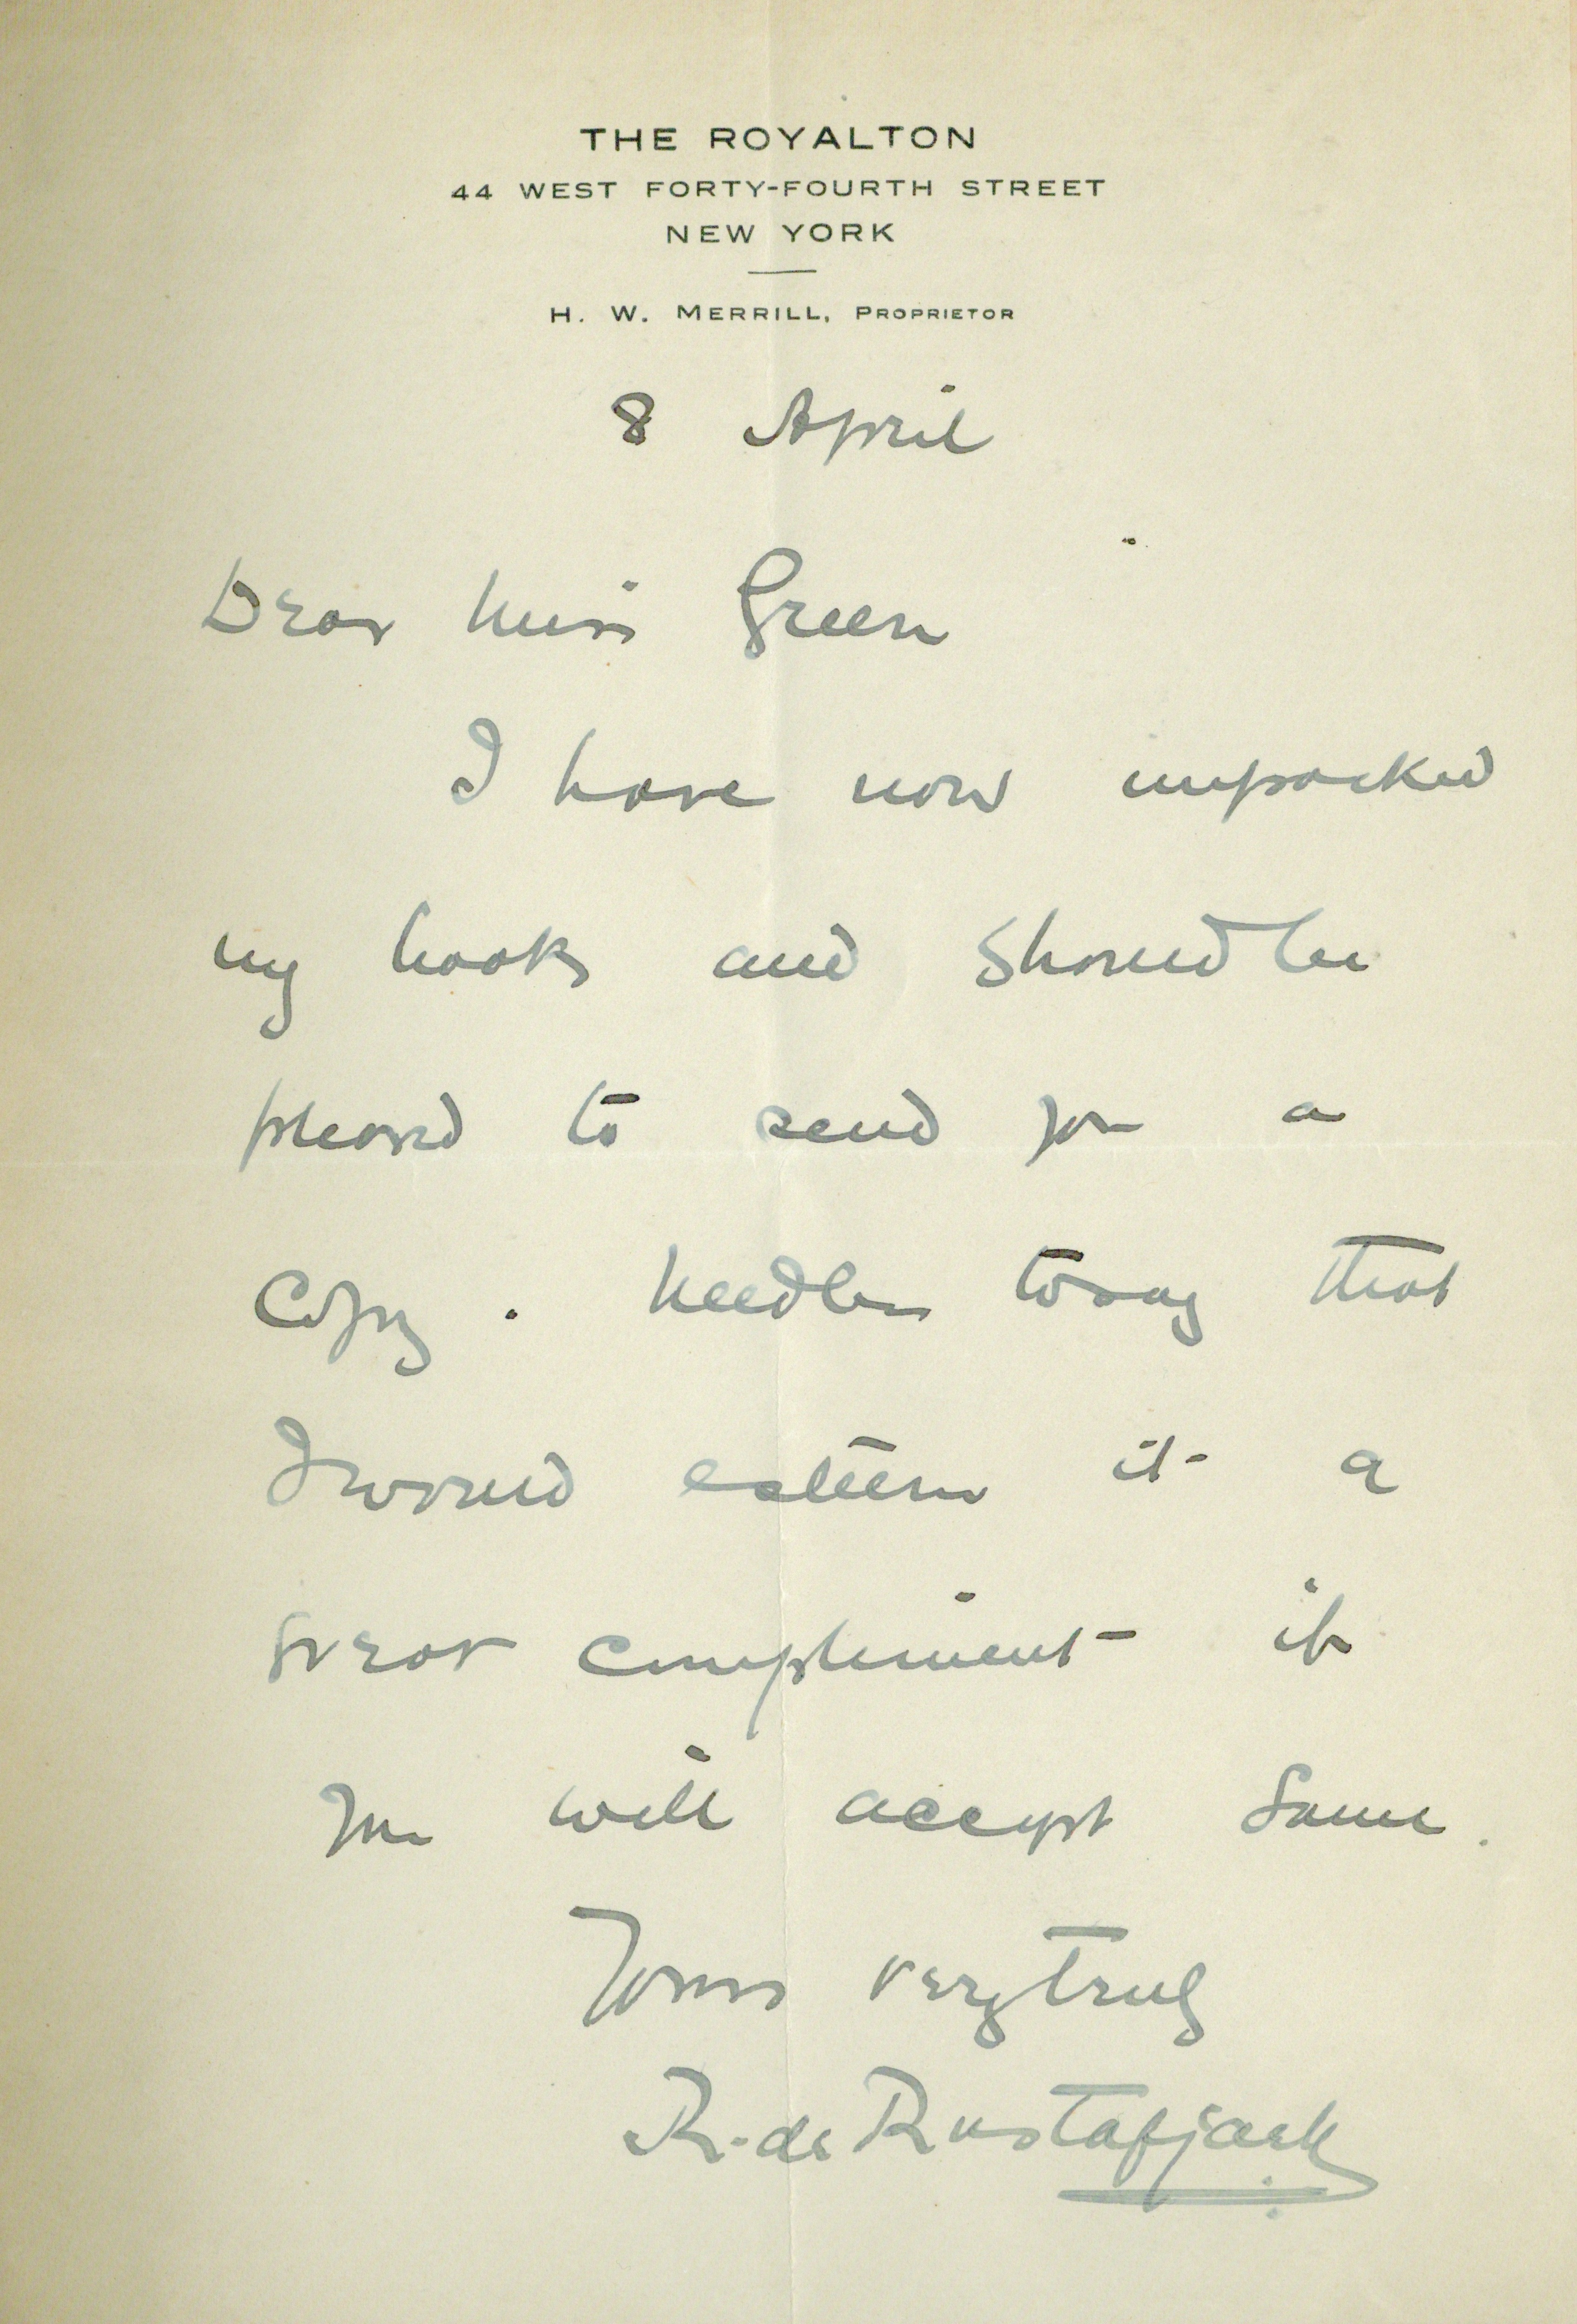 THE ROYALTON
44 WEST FORTY-FOURTH STREET
NEW YORK
H. W. MERRILL, PROPRIETOR
8 April
Dear Miss Green
I have now unpacked
my books and should be
pleased to send you a
copy. Needless to say that
I would esteem it a
great compliment if
you will accept same.
Yours very truly
R. de Rustafjaell